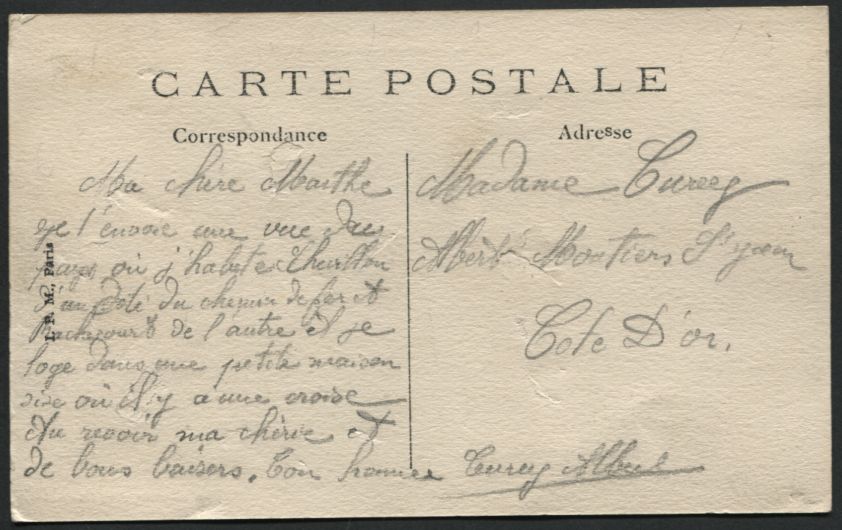 CARTE POSTALE
Correspondance
Adresse
Ma chère Marthe
je t'envoie une vue du
pays où j'habite
d'un côté du chemin de fer et
de l'autre et je
loge dans une petite maison
où il y a une croise
Au revoir ma chérie et
de bons baisers. Ton homme
Curey Albert
Madame Curey
Albert Moutiers St jean
Cote D'or.
L. P. M., Paris